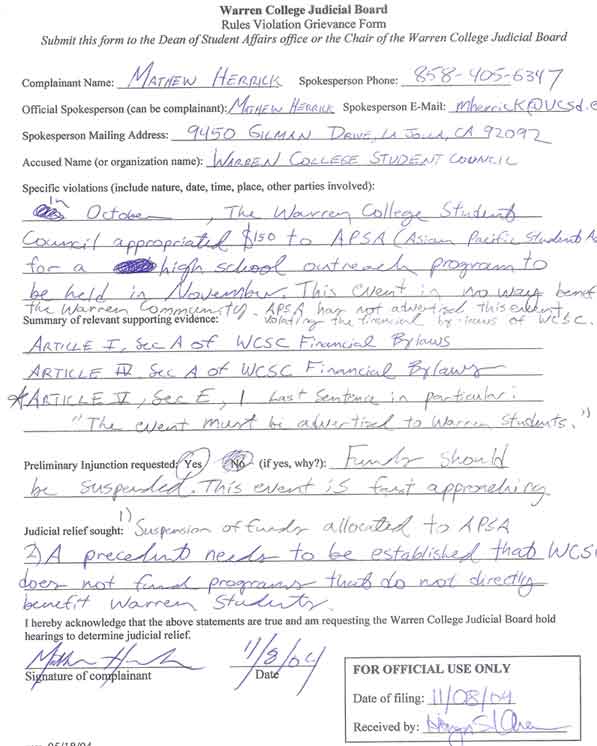 Warren College Judicial Board
Rules Violation Grievance Form
Submit this form to the Dean of Student Affairs office or the Chair of the Warren College Judicial Board
Complainant Name: MATHEW HERRICK Spokesperson Phone: 858-405-6347
Official Spokesperson (can be complainant): MATHEW HERRICK Spokesperson E-Mail: mherrick@ucsd.e
Spokesperson Mailing Address: 9450 GILMAN DRIVE, LA JOLLA, CA 92092
Accused Name (or organization name): WARREN COLLEGE STUDENT COUNCIL
Specific violations (include nature, date, time, place, other parties involved):
In October, The Warren College Student
Council appropriated $150 to APSA (Asian Pacific Student A
for a high school outreach program to
be held in November This event in no way benef
the Warren Community. APSA has not advertised this event
violating the financial by-laws of WCSC.
Summary of relevant supporting evidence:
ARTICLE I, Sec A of WCSC Financial Bylaws
ARTICLE IV Sec A of WCSC Financial Bylaws
*ARTICLE V, Sec E, 1 Last Sentence in particular:
"The event must be advertised to Warren Students.")
Preliminary Injunction requested: Yes No (if yes, why?): Funds should
be suspended. This event is fast approaching.
Judicial relief sought: 1) Suspension of funds allocated to APSA
2) A precedent needs to be established that WCS
does not fund programs that do not directly
benefit Warren Students.
I hereby acknowledge that the above statements are true and am requesting the Warren College Judicial Board hold
hearings to determine judicial relief.
11/8/04
Signature of complainant Date
FOR OFFICIAL USE ONLY
Date of filing: 11/08/04
Received by: